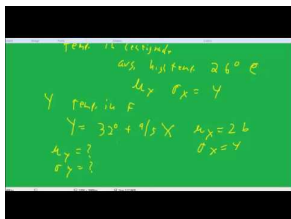 temp. in centigrade
avg. high temp. 26° C
μx σx = 4
Y temp. in F
Y = 32° + 9/5 X μx = 26
μy = ? σx = 4
σy = ?